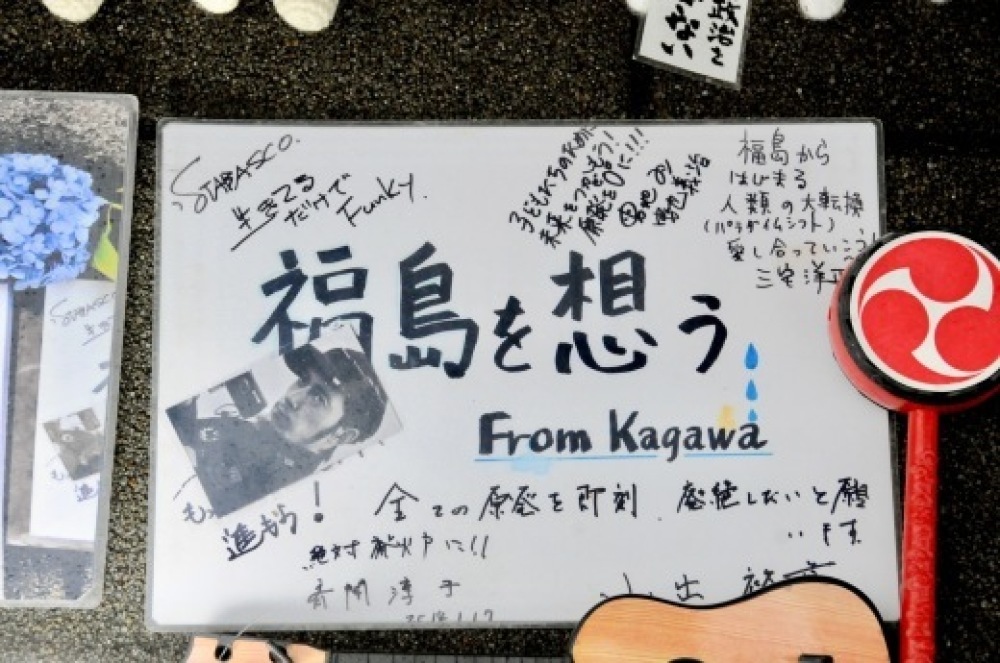 政治を
STABASCO.
生きてる
だけで
Funky.
子どもたちのために
未来をつなごう!
原発を0に!!!
福島から
はじまる
人類の大転換
(パラダイムシフト)
愛し合っていこう!
三宅洋
福島を想う
From Kagawa
進もう!
全ての原発を即刻、廃絶したいと願
います
絶対廃炉に!!
淳子
小出裕章
STABASCO.